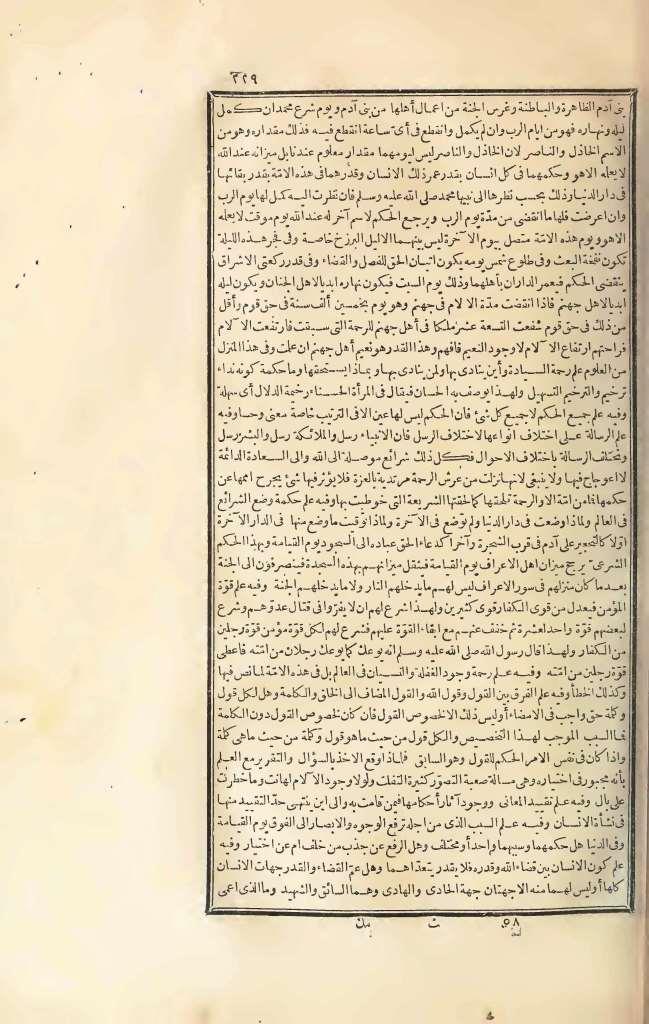 ٣٢٩
بنى آدم الظاهرة والباطنة وغرس الجنة من اعمال أهلها من بنى آدم ويوم شرع محمد ان كمل
ليله ونهاره فهو من ايام الرب وان لم يكمل وانقطع فى أى ساعة انقطع فيه فذلك مقداره وهو من
الاسم الخاذل والناصر لان الخاذل والناصر ليس ليومهما مقدار معلوم عندنا بل ميزانه عند الله
لا يعلمه الا هو وحكمهما فى كل انسان بقدر عمر ذلك الانسان وقدرهما فى هذه الامة بقدر بقائها
فى دار الدنيا وذلك بحسب نظرها الى نبيها محمد صلى الله عليه وسلم فان نظرت اليه كمل لها يوم الرب
وان اعرضت فلها ما انقضى من مدة يوم الرب ويرجع الحكم لاسم آخر له عند الله يوم موقت لا يعلمه
الا هو ويوم هذه الامة متصل بيوم الآخرة ليس بينهما الا ليل البرزخ خاصة وفى فجر هذه الليلة
تكون نفخة البعث وفى طلوع شمس يومه يكون اتيان الحق للفصل والقضاء وفى قدر ركعتى الاشراق
ينقضى الحكم فيعمر الداران بأهلهما وذلك يوم السبت فيكون نهاره ابديا لاهل الجنان ويكون ليله
ابديا لاهل جهنم فاذا انقضت مدة الآلام فى جهنم وهو يوم بخمسين ألف سنة فى حق قوم وأقل
من ذلك فى حق قوم شفعت التسعة عشر ملكا فى أهل جهنم للرحمة التى سبقت فارتفعت الآلام
فراحتهم ارتفاع الآلام لا وجود النعيم فافهم وهذا القدر هو نعيم أهل جهنم ان علمت وفى هذا المنزل
من العلوم علم رحمة السيادة وأين ينادى بها ولمن ينادى بها وبماذا يستحقها وما حكمة كونه نداء
ترخيم والترخيم التسهيل ولهذا يوصف به الحسان فيقال فى المرأة الحسناء رخيمة الدلال أى سهلة
وفيه علم جميع الحكم لا جميع كل شئ فان الحكم ليس لها عين الا فى الترتيب خاصة معنى وحسا وفيه
علم الرسالة على اختلاف انواعها لاختلاف الرسل فان الانبياء رسل والملائكة رسل والبشر رسل
وتختلف الرسالة باختلاف الاحوال فكل ذلك شرائع موصلة الى الله والى السعادة الدائمة
لا اعوجاج فيها ولا ينبغى لانها نزلت من عرش الرحمة مرتدية بالعزة فلا يؤثر فيها شئ يجرح اممها عن
حكمها فما من امة الا والرحمة تلحقها كما لحقتها الشريعة التى خوطبت بها وفيه علم حكمة وضع الشرائع
فى العالم ولماذا وضعت فى دار الدنيا ولم توضع فى الآخرة ولماذا توقيت ما وضع منها فى الدار الآخرة
اولا كالتحجير على آدم فى قرب الشجرة وآخرا كدعاء الحق عباده الى السجود يوم القيامة وبهذا الحكم
الشرعى يرجح ميزان اهل الاعراف يوم القيامة فيثقل ميزانهم بهذه السجدة فينصرفون الى الجنة
بعد ما كان منزلهم فى سور الاعراف ليس لهم ما يدخلهم النار ولا ما يدخلهم الجنة وفيه علم قوة
المؤمن فيعدل من قوى الكفار قوى كثيرين ولهذا شرع لهم ان لا يفروا فى قتال عدوهم وشرع
لبعضهم قوة واحد لعشرة ثم خفف عنهم مع ابقاء القوة عليهم فشرع لهم لكل قوة مؤمن قوة رجلين
من الكفار ولهذا قال رسول الله صلى الله عليه وسلم انه يوعك كما يوعك رجلان من امته فاعطى
قوة رجلين من امته وفيه علم رحمة وجود الغفلة والنسيان فى العالم بل فى هذه الامة لما نص فيها
وكذلك الخطأ وفيه علم الفرق بين القول وقول الله والقول المضاف الى الخلق والكلمة وهل لكل قول
وكلمة حق واجب فى الامضاء أو ليس ذلك الا لخصوص القول فان كان لخصوص القول دون الكلمة
فما السبب الموجب لهذا التخصيص والكل قول من حيث ما هو قول وكلمة من حيث ما هى كلمة
واذا كان فى نفس الامر الحكم للقول وهو السابق فلماذا وقع الاخذ بالسؤال والتقرير مع العلم
بأنه مجبور فى اختياره وهى مسألة صعبة التصور كثيرة التفلت ولولا وجود الآلام لهانت وما خطرت
على بال وفيه علم تقييد المعانى ووجود آثار أحكامها فيمن قامت به والى اين ينتهى حد التقييد منها
فى نشأة الانسان وفيه علم السبب الذى من اجله ترفع الوجوه والابصار الى الفوق يوم القيامة
وفى الدنيا هل حكمهما وسببهما واحد أو مختلف وهل الرفع عن جذب من خلف ام عن اختيار وفيه
علم كون الانسان بين قضاء الله وقدره فلا يقدر يتعداهما وهل عم القضاء والقدر جهات الانسان
كلها أو ليس لهما منه الا جهتان جهة الحادى والهادى وهما السائق والشهيد وما الذى اعمى
٥٨ ث مك